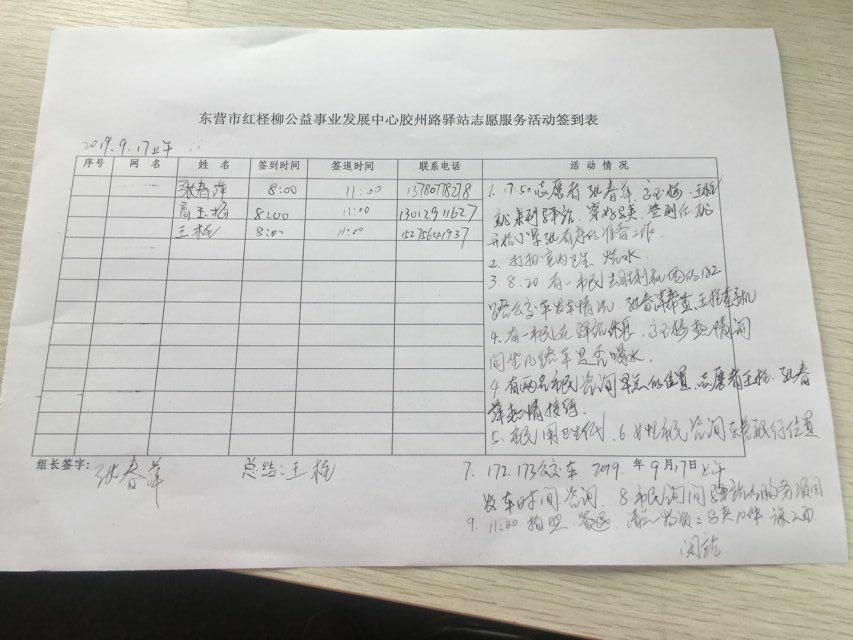 东营市红柽柳公益事业发展中心胶州路驿站志愿服务活动签到表
2019.9.17上午
序号 网名 姓名 签到时间 签退时间 联系电话 活动情况
张春萍 8:00 11:00 13780778278
高玉梅 8:00 11:00 13012911627
王梅 8:00 11:00 15275641937
1. 7:50志愿者张春萍、高玉梅、王梅
就来到驿站。穿好马夹 签到后就
开始准备工作。
2. 打扫室内卫生 烧水
3. 8.20有一市民去胜利机场的102
路公交车发车情况
4. 有一市民在驿站休息。高玉梅热情询
问 是否喝水。
4. 有两名市民咨询 的位置 志愿者王梅、张春
萍热情接待
5. 市民用卫生纸 6. 女性市民咨询东营银行位置
组长签字: 张春萍 总结:王梅
7. 172.173公交车
2019年9月17日上午
发车时间咨询. 8 市民询问驿站的服务项目
9. 11:00拍照 签退
闭站